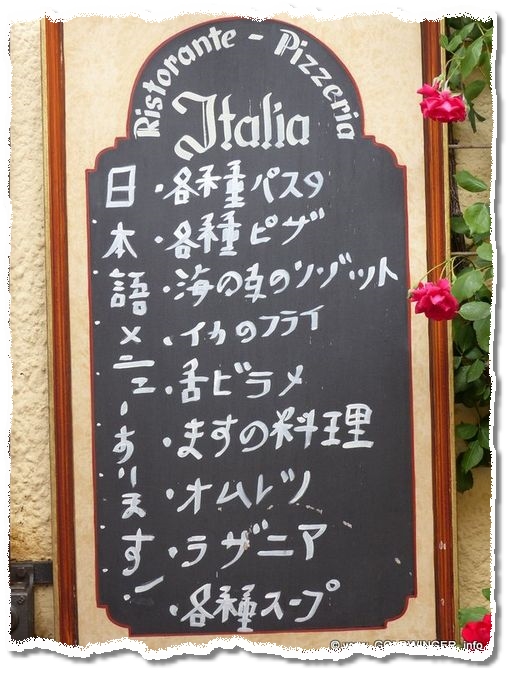 Ristorante - Pizzeria
Italia
日本語メニューあります!
・各種パスタ
・各種ピザ
・海の幸のリゾット
・イカのフライ
・舌ビラメ
・ますの料理
・オムレツ
・ラザニア
・各種スープ